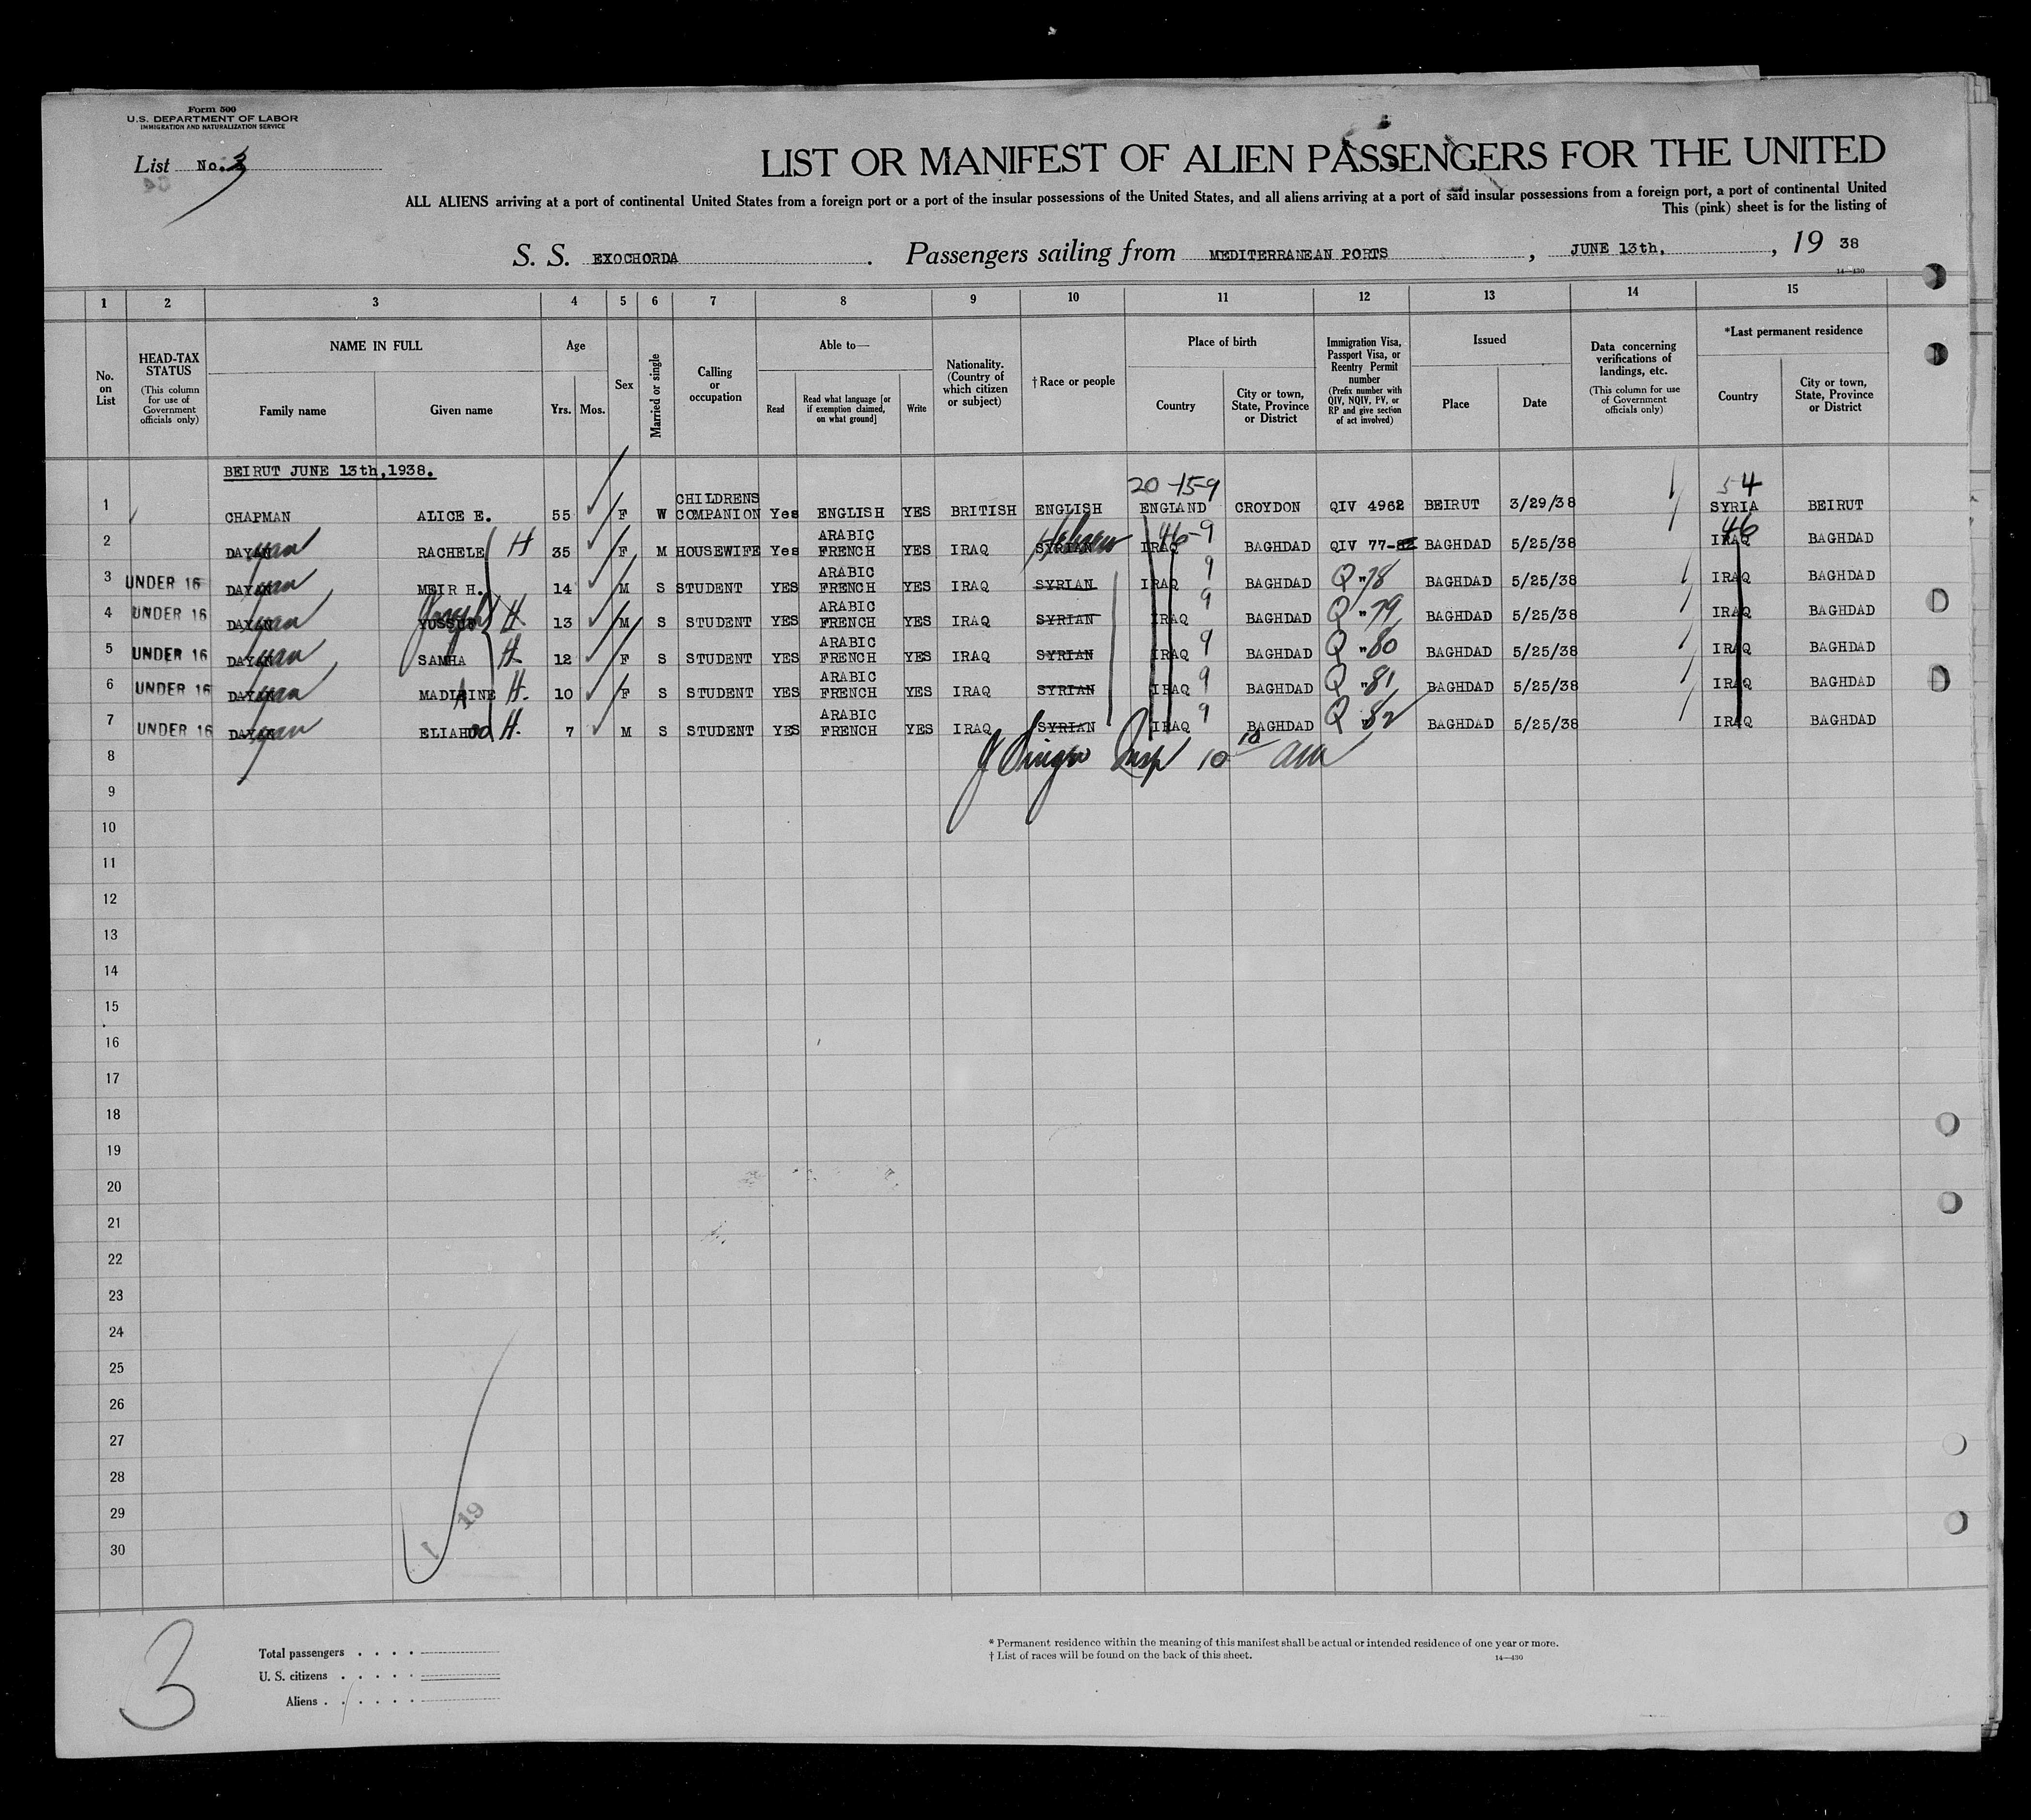 Form 500
U.S. DEPARTMENT OF LABOR
IMMIGRATION AND NATURALIZATION SERVICE
List No. 3
LIST OR MANIFEST OF ALIEN PASSENGERS FOR THE UNITED
ALL ALIENS arriving at a port of continental United States from a foreign port or a port of the insular possessions of the United States, and all aliens arriving at a port of said insular possessions from a foreign port, a port of continental United
This (pink) sheet is for the listing of
S. S. EXOCHORDA . Passengers sailing from MEDITERRANEAN PORTS , JUNE 13th, , 19 38
14—430
1 2 3 4 5 6 7 8 9 10 11 12 13 14 15
No. on List
HEAD-TAX STATUS (This column for use of Government officials only)
NAME IN FULL Family name Given name
Age Yrs. Mos.
Sex
Married or single
Calling or occupation
Able to— Read Read what language [or if exemption claimed, on what ground] Write
Nationality. (Country of which citizen or subject)
† Race or people
Place of birth Country City or town, State, Province or District
Immigration Visa, Passport Visa, or Reentry Permit number (Prefix number with QIV, NQIV, PV, or RP and give section of act involved)
Issued Place Date
Data concerning verifications of landings, etc. (This column for use of Government officials only)
*Last permanent residence Country City or town, State, Province or District
BEIRUT JUNE 13th,1938.
20 -15-9 54
1 CHAPMAN ALICE E. 55 F W CHILDRENS COMPANION Yes ENGLISH YES BRITISH ENGLISH ENGLAND CROYDON QIV 4962 BEIRUT 3/29/38 SYRIA BEIRUT
2 DAYAN RACHELE H 35 F M HOUSEWIFE Yes ARABIC FRENCH YES IRAQ SYRIAN Hebrew IRAQ 46-9 BAGHDAD QIV 77-82 BAGHDAD 5/25/38 46 IRAQ BAGHDAD
3 UNDER 16 DAYAN MEIR H. 14 M S STUDENT YES ARABIC FRENCH YES IRAQ SYRIAN IRAQ 9 BAGHDAD Q "78 BAGHDAD 5/25/38 IRAQ BAGHDAD
4 UNDER 16 DAYAN YUSSUF Joseph H. 13 M S STUDENT YES ARABIC FRENCH YES IRAQ SYRIAN IRAQ 9 BAGHDAD Q "79 BAGHDAD 5/25/38 IRAQ BAGHDAD
5 UNDER 16 DAYAN SAMHA H. 12 F S STUDENT YES ARABIC FRENCH YES IRAQ SYRIAN IRAQ 9 BAGHDAD Q "80 BAGHDAD 5/25/38 IRAQ BAGHDAD
6 UNDER 16 DAYAN H. 10 F S STUDENT YES ARABIC FRENCH YES IRAQ SYRIAN IRAQ 9 BAGHDAD Q "81 BAGHDAD 5/25/38 IRAQ BAGHDAD
7 UNDER 16 DAYAN ELIAHOO H. 7 M S STUDENT YES ARABIC FRENCH YES IRAQ SYRIAN IRAQ 9 BAGHDAD Q 82 BAGHDAD 5/25/38 IRAQ BAGHDAD
8 Insp 10 10 am
9
10
11
12
13
14
15
16
17
18
19
20
21
22
23
24
25
26
27
28
29
30
19
3
Total passengers
U. S. citizens
Aliens
* Permanent residence within the meaning of this manifest shall be actual or intended residence of one year or more.
† List of races will be found on the back of this sheet. 14—430